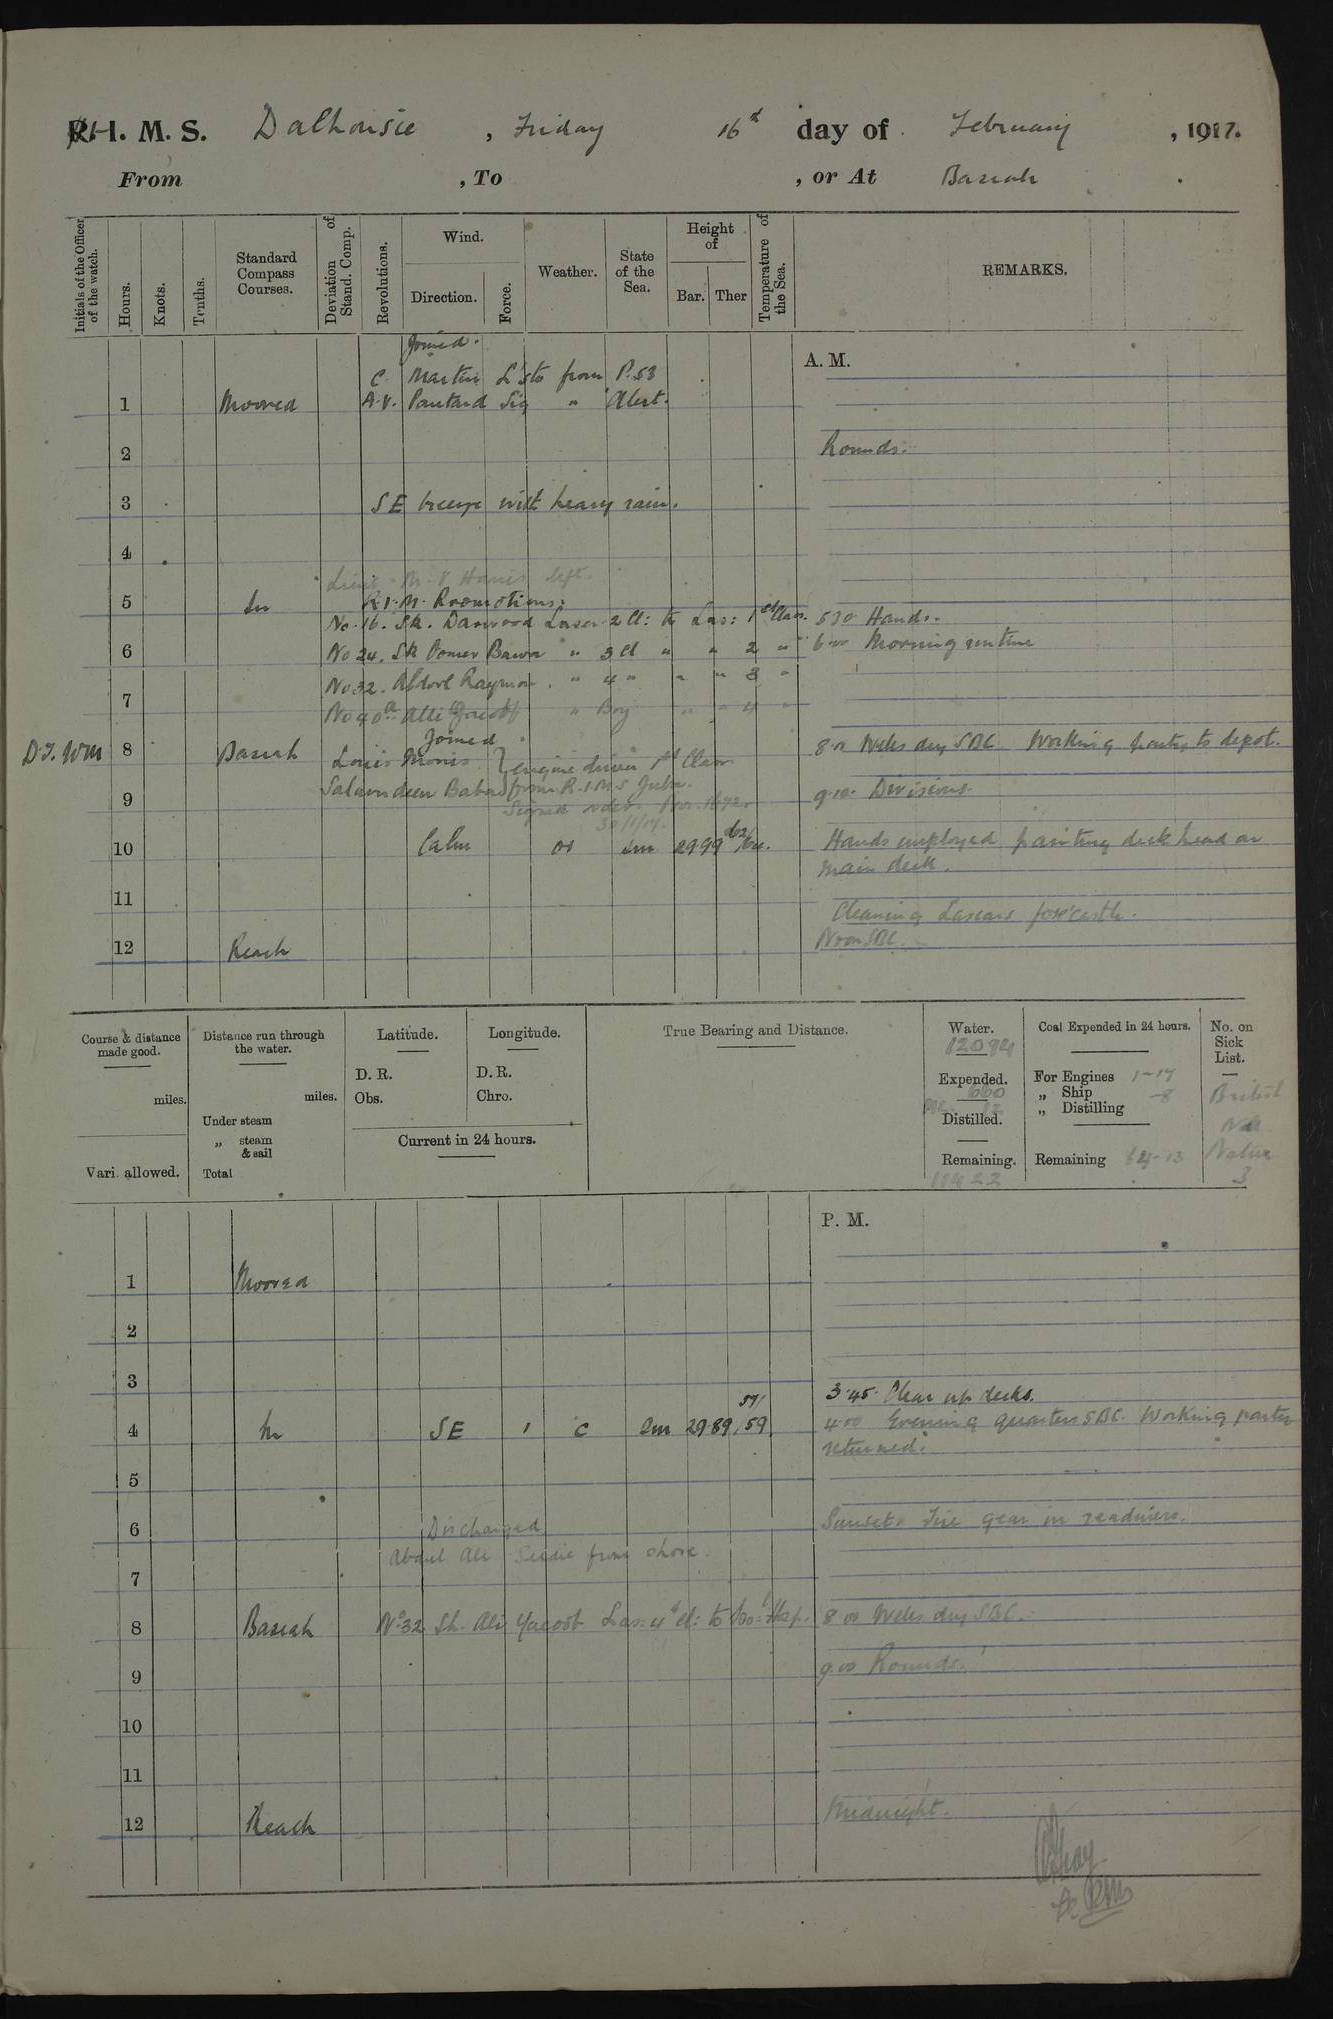 H. M. S. Dalhousie, Friday 16th day of February, 1917.
From , To , or At Basrah.
Initials of the Officer of the watch.
Hours.
Knots.
Tenths.
Standard Compass Courses.
Deviation of Stand. Comp.
Revolutions.
Wind.
Direction.
Force.
Weather.
State of the Sea.
Height of
Bar.
Ther
Temperature of the Sea.
REMARKS.
A. M.
Joined.
C. Martin L Sto from P.53
1 Moored A.V. Pontard Sig " Alert.
2 Rounds.
3 SE breeze with heavy rain.
4
Lieut. M. V. Harris left.
5 In R.I.M. Promotions:
No 16. Sk. Dawood Lascar 2 Cl: to Las: 1st Class. 5 30 Hands.
6 No 24. Sk Oomer Bawa " 3 Cl " " 2 " 6.00 Morning routine
No 32. Abdool Rayman. " 4 " " " 3 "
7 No 40a Alli Yacoob " Boy " " 4 "
Joined
D.J. WM 8 Basrah Louis Monis } engine driver 1st Class 8.00 Wds dug SBC. Working party to depot.
Salamdeen Baboo } from R.I.M.S Juba.
9 9.10. Divisions.
30/1/17.
10 Calm or Sm 2999 62/ Hands employed painting deck head on
main deck.
11 Cleaning Lascars fore'castle.
12 Reach Noon SBC.
Course & distance made good.
miles.
Vari. allowed.
Distance run through the water.
miles.
Under steam
„ steam & sail
Total
Latitude.
D. R.
Obs.
Longitude.
D. R.
Chro.
Current in 24 hours.
True Bearing and Distance.
Water.
12094
Expended.
660
Distilled.
Remaining.
11422
Coal Expended in 24 hours.
For Engines 1-17
„ Ship -8
„ Distilling
Remaining 64-13
No. on Sick List.
British
Nil
Native
3
P. M.
1 Moored
2
3
3.45. Clear up decks.
4 In SE 1 C Sm 2989 57/59 4 00 Evening quarters SBC. Working party
returned.
5
6 Discharged Sunset. Fire gear in readiness.
Abdul Ali Seedie from shore.
7
8 Basrah No 32 Sk. Ali Yacoob Las: 4th Cl: to Hosp. 8 00 SBC.
9 9.00 Rounds.
10
11
12 Reach Midnight.